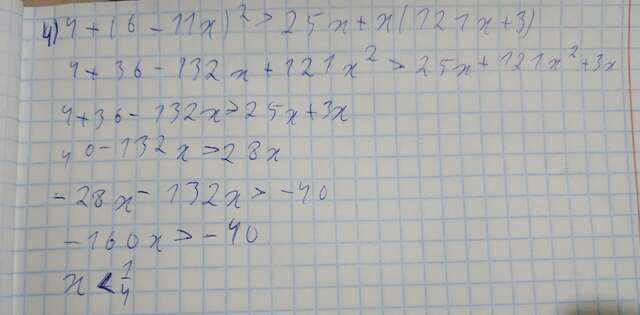 4) 4 + (6 - 11x)² > 25x + x(121x + 3)
4 + 36 - 132x + 121x² > 25x + 121x² + 3x
4 + 36 - 132x > 25x + 3x
40 - 132x > 28x
-28x - 132x > -40
-160x > -40
x < 1/4